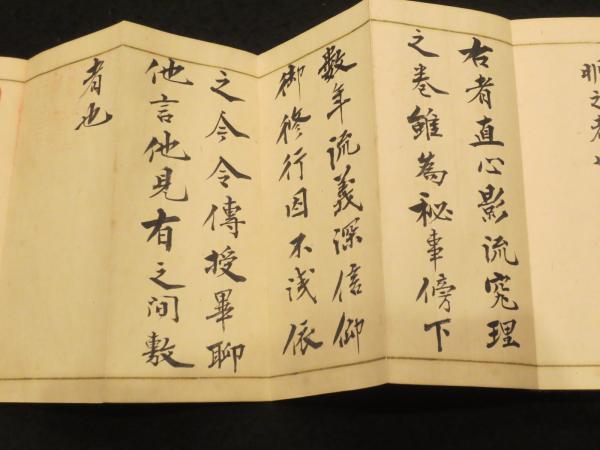 之者也
右者直心影流究理
之巻雖為秘事傍下
数年流義深信仰
御修行因不浅依
之今令傳授畢聊
他言他見有之间敷
者也